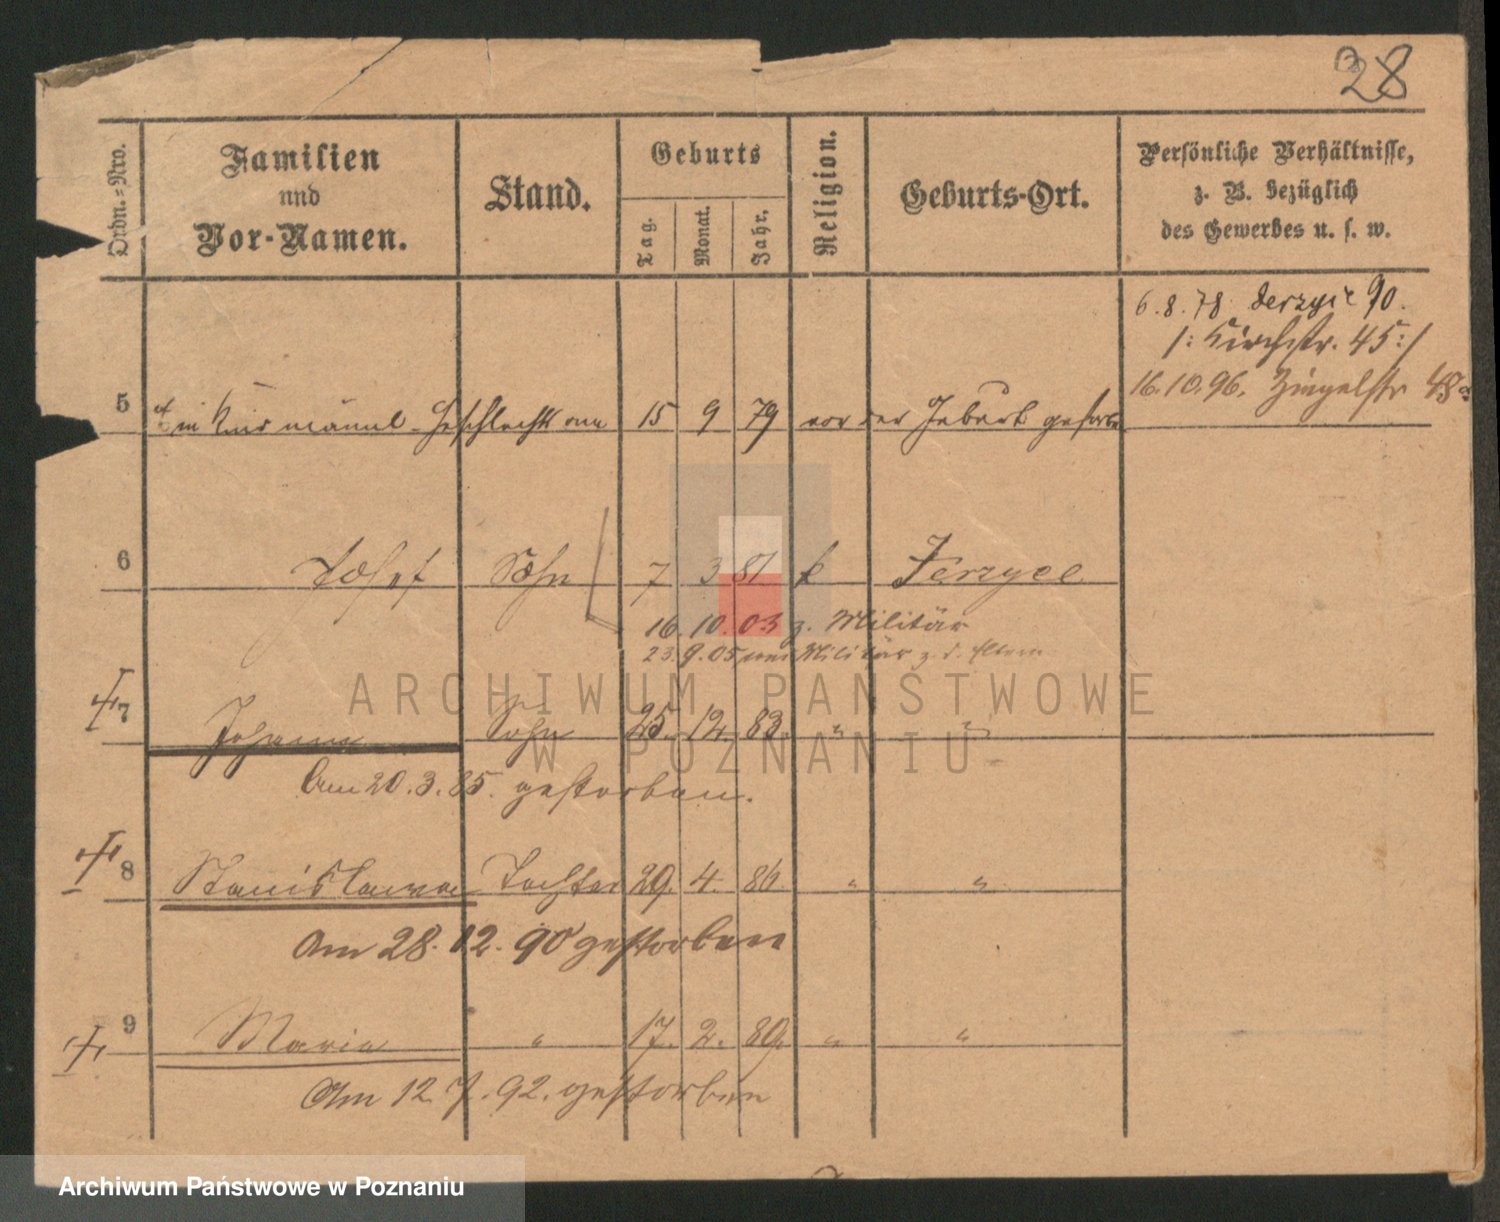 28
Ordn.-Nro.
Familien
und
Vor-Namen.
Stand.
Geburts
Tag.
Monat.
Jahr.
Religion.
Geburts-Ort.
Persönliche Verhältnisse,
z. B. bezüglich
des Gewerbes u. s. w.
6.8.78 Jerzyce 90.
/: Kirchstr. 45 :/
16.10.96.
5 ein Kind männl. Geschlechts am 15 9 79 vor der Geburt gestorben
6 Josef Sohn 7 3 81 k Jerzyce
16. 10. 03 z. Militär
23. 9. 05 vom Militär z. d. Eltern
7 Johann Sohn 25. 12. 83. " "
Am 20.3.85. gestorben.
8 Stanislawa Tochter 29. 4. 86. " "
Am 28.12.90 gestorben
9 Maria " 17. 2. 89. " "
Am 12.7.92. gestorben
ARCHIWUM PAŃSTWOWE
W POZNANIU
Archiwum Państwowe w Poznaniu